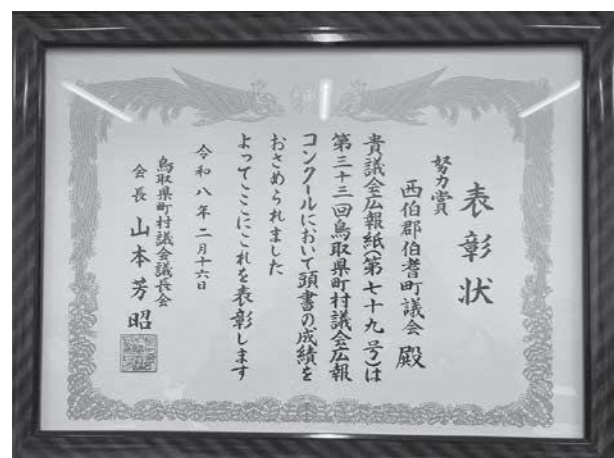 表彰状
努力賞
西伯郡伯耆町議会 殿
貴議会広報紙(第七十九号)は
第三十三回鳥取県町村議会広報
コンクールにおいて頭書の成績を
おさめられました
よってここにこれを表彰します
令和八年二月十六日
鳥取県町村議会議長会
会長 山本芳昭